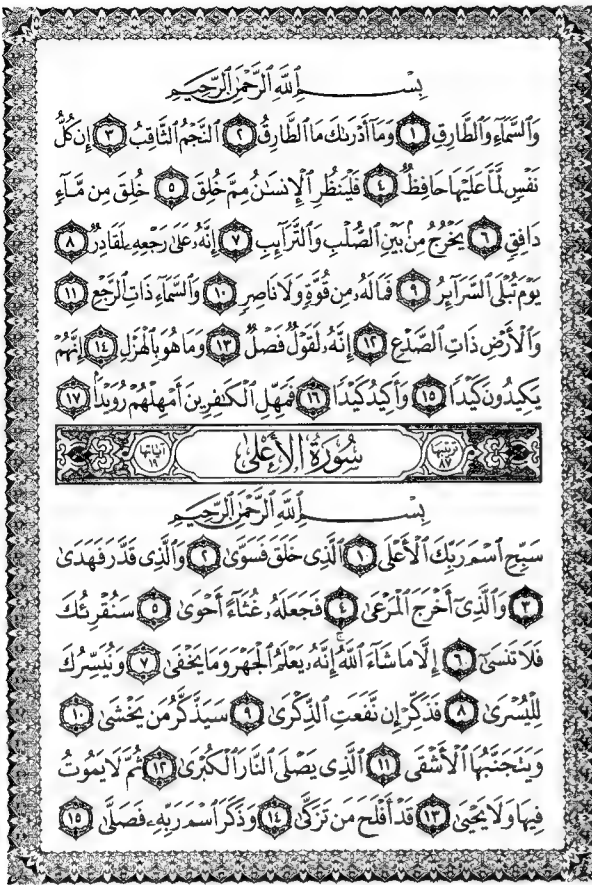 بِسْمِ ٱللَّهِ ٱلرَّحْمَٰنِ ٱلرَّحِيمِ
وَٱلسَّمَآءِ وَٱلطَّارِقِ ١ وَمَآ أَدْرَىٰكَ مَا ٱلطَّارِقُ ٢ ٱلنَّجْمُ ٱلثَّاقِبُ ٣ إِن كُلُّ
نَفْسٍ لَّمَّا عَلَيْهَا حَافِظٌ ٤ فَلْيَنظُرِ ٱلْإِنسَٰنُ مِمَّ خُلِقَ ٥ خُلِقَ مِن مَّآءٍ
دَافِقٍ ٦ يَخْرُجُ مِنۢ بَيْنِ ٱلصُّلْبِ وَٱلتَّرَآئِبِ ٧ إِنَّهُۥ عَلَىٰ رَجْعِهِۦ لَقَادِرٌ ٨
يَوْمَ تُبْلَى ٱلسَّرَآئِرُ ٩ فَمَا لَهُۥ مِن قُوَّةٍ وَلَا نَاصِرٍ ١٠ وَٱلسَّمَآءِ ذَاتِ ٱلرَّجْعِ ١١
وَٱلْأَرْضِ ذَاتِ ٱلصَّدْعِ ١٢ إِنَّهُۥ لَقَوْلٌ فَصْلٌ ١٣ وَمَا هُوَ بِٱلْهَزْلِ ١٤ إِنَّهُمْ
يَكِيدُونَ كَيْدًا ١٥ وَأَكِيدُ كَيْدًا ١٦ فَمَهِّلِ ٱلْكَٰفِرِينَ أَمْهِلْهُمْ رُوَيْدًۢا ١٧
ترتيبها ٨٧ سُورَةُ الأَعْلَىٰ آياتها ١٩
بِسْمِ ٱللَّهِ ٱلرَّحْمَٰنِ ٱلرَّحِيمِ
سَبِّحِ ٱسْمَ رَبِّكَ ٱلْأَعْلَى ١ ٱلَّذِى خَلَقَ فَسَوَّىٰ ٢ وَٱلَّذِى قَدَّرَ فَهَدَىٰ
٣ وَٱلَّذِىٓ أَخْرَجَ ٱلْمَرْعَىٰ ٤ فَجَعَلَهُۥ غُثَآءً أَحْوَىٰ ٥ سَنُقْرِئُكَ
فَلَا تَنسَىٰٓ ٦ إِلَّا مَا شَآءَ ٱللَّهُ ۚ إِنَّهُۥ يَعْلَمُ ٱلْجَهْرَ وَمَا يَخْفَىٰ ٧ وَنُيَسِّرُكَ
لِلْيُسْرَىٰ ٨ فَذَكِّرْ إِن نَّفَعَتِ ٱلذِّكْرَىٰ ٩ سَيَذَّكَّرُ مَن يَخْشَىٰ ١٠
وَيَتَجَنَّبُهَا ٱلْأَشْقَى ١١ ٱلَّذِى يَصْلَى ٱلنَّارَ ٱلْكُبْرَىٰ ١٢ ثُمَّ لَا يَمُوتُ
فِيهَا وَلَا يَحْيَىٰ ١٣ قَدْ أَفْلَحَ مَن تَزَكَّىٰ ١٤ وَذَكَرَ ٱسْمَ رَبِّهِۦ فَصَلَّىٰ ١٥